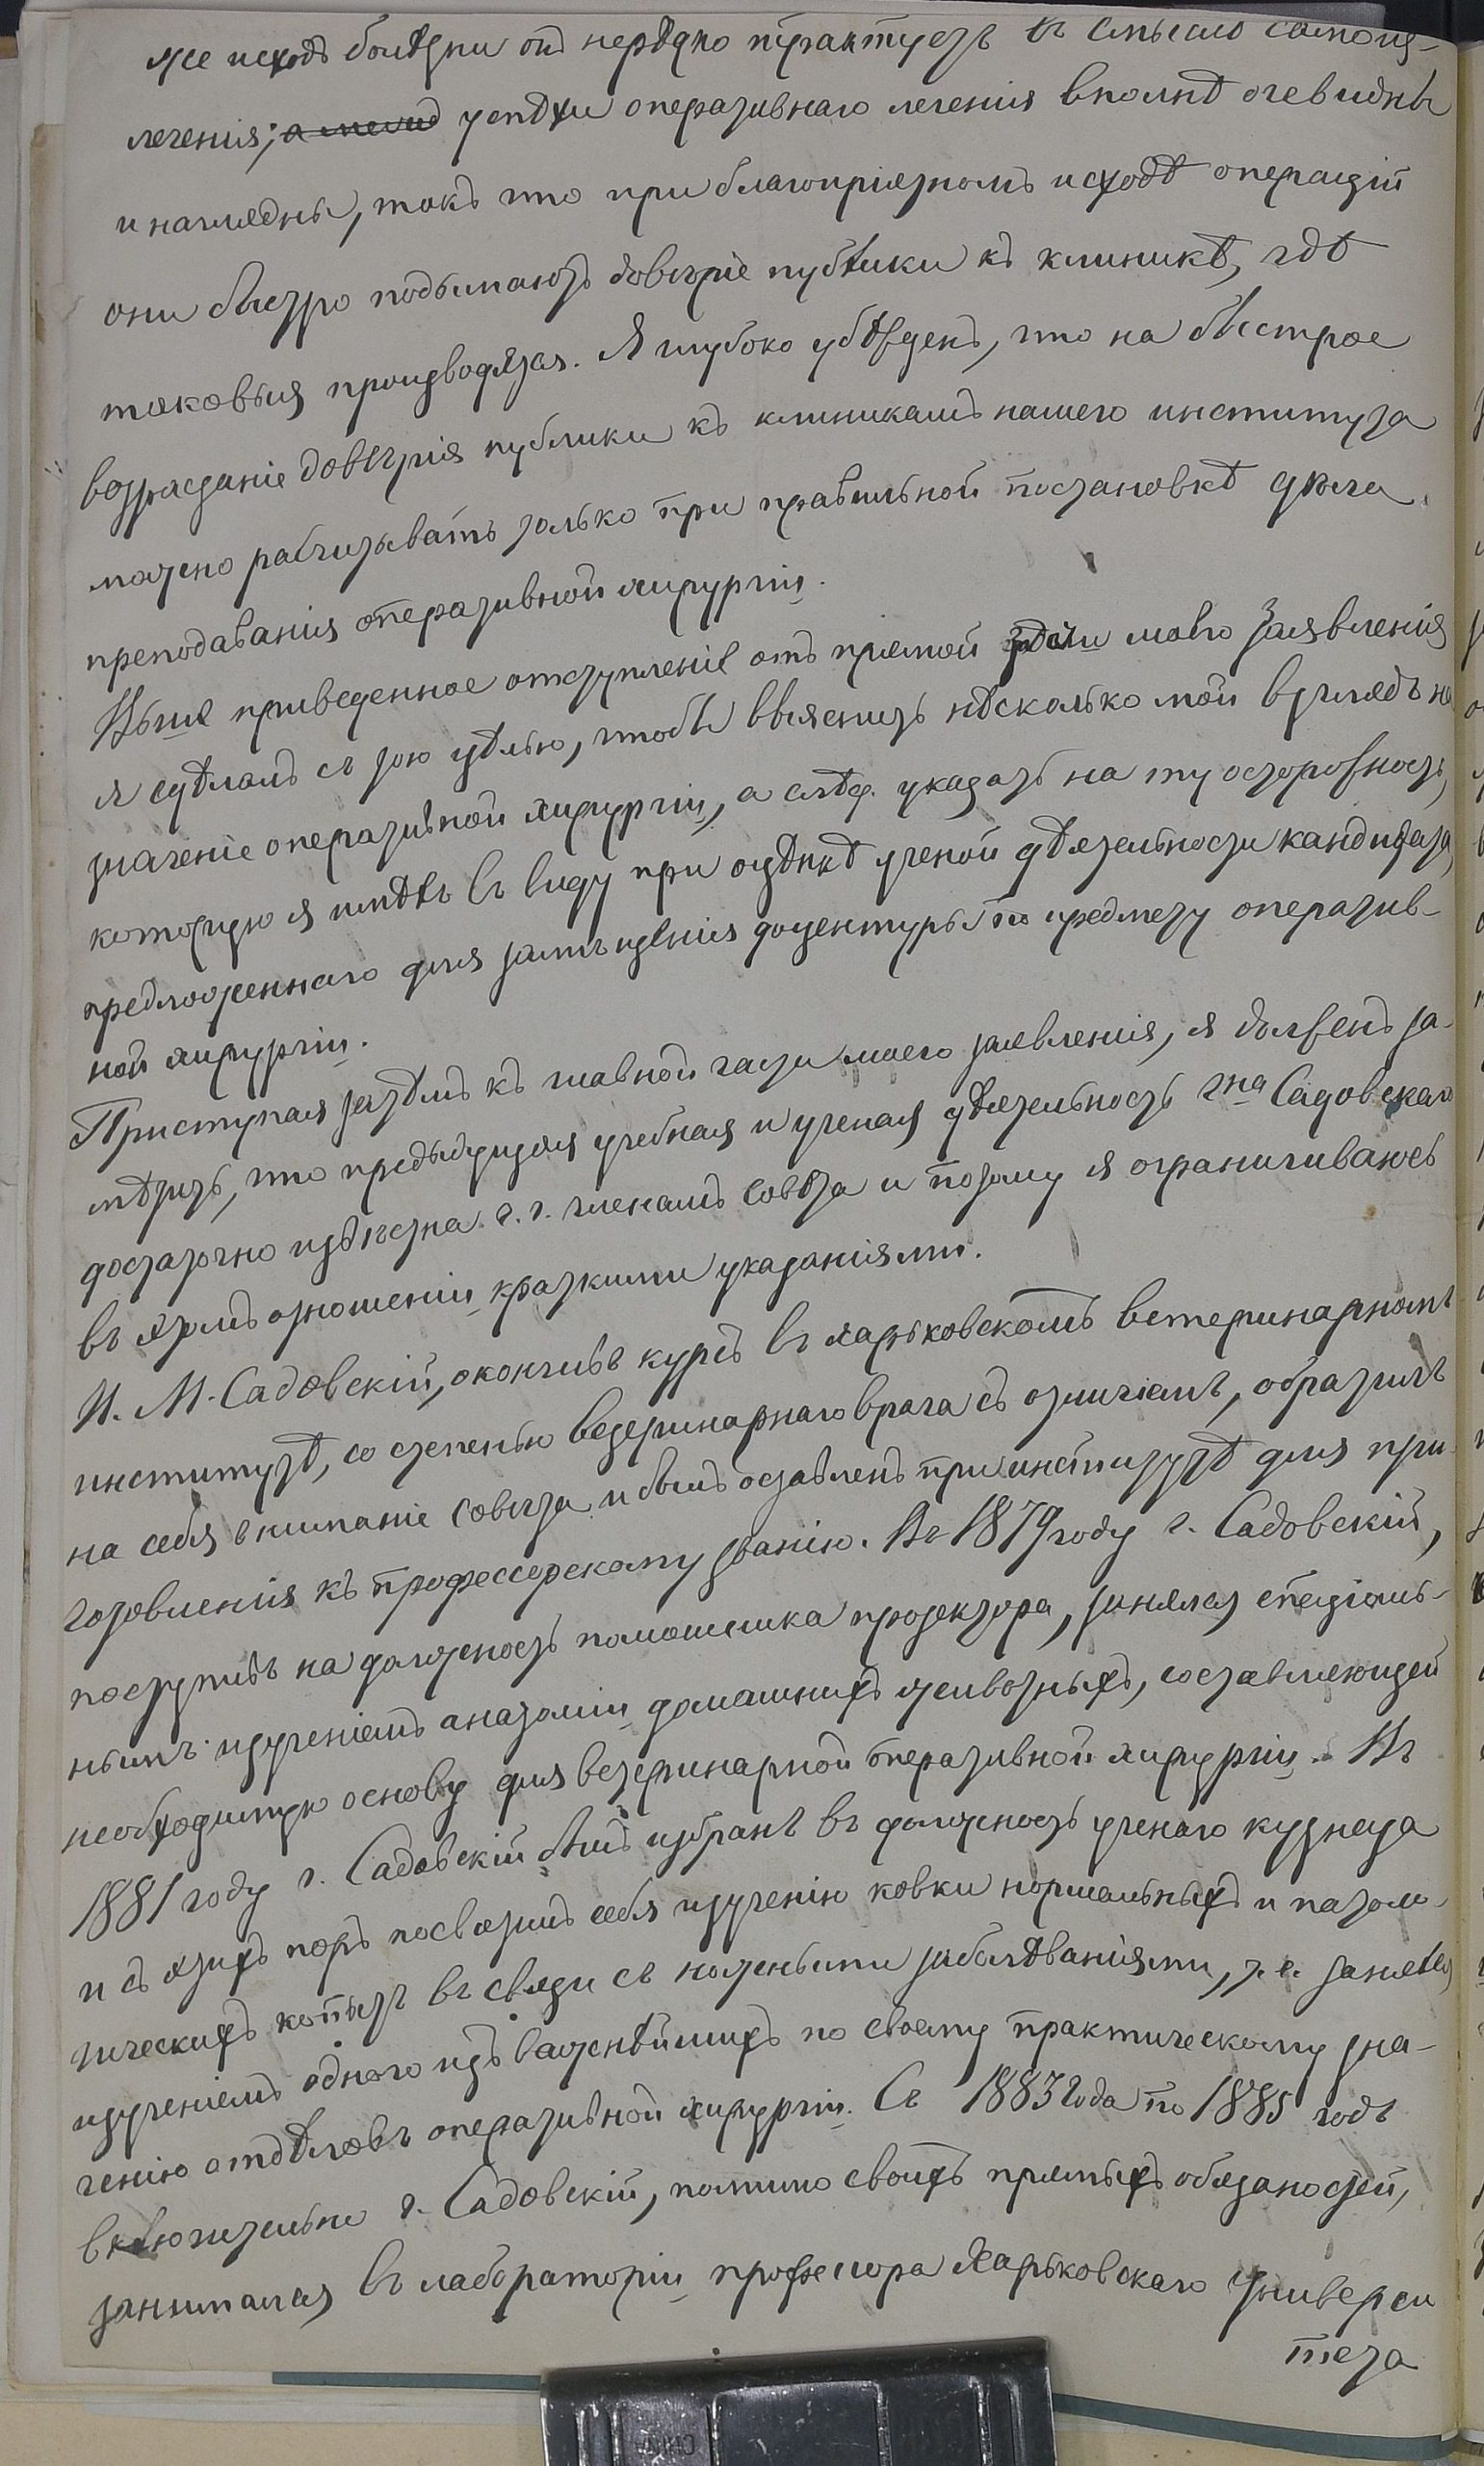 же исходъ болѣзни онъ нерѣдко трактуетъ въ смыслѣ самоиз-
леченія; успѣхи оперативнаго леченія вполнѣ очевидны
и наглядны, такъ что при благопріятномъ исходѣ операцій
они быстро подымаютъ довѣріе публики къ клиникѣ, гдѣ
таковыя производятся. Я глубоко убѣжденъ, что на быстрое
возрастаніе довѣрія публики къ клиникамъ нашего института
можно расчитывать только при правильной постановкѣ дѣла
преподаванія оперативной хирургіи.
Выше приведенное отступленіе отъ прямой моего заявленія
я сдѣлалъ съ тою цѣлью, чтобы выяснить нѣсколько мой взглядъ на
значеніе оперативной хирургіи, а слѣд. указать на ту осторожность,
которую я имѣлъ въ виду при оцѣнкѣ ученой дѣятельности кандидата,
предложеннаго для замѣщенія доцентуры по предмету оператив-
ной хирургіи.
Приступая затѣмъ къ главной части моего заявленія, я долженъ за-
мѣтить, что предыдущая учебная и ученая дѣятельность г-на Садовскаго
достаточно извѣстна г.г. членамъ совѣта и потому я ограничиваюсь
въ этомъ отношеніи краткими указаніями.
И. М. Садовскій, окончивъ курсъ въ харьковскомъ ветеринарномъ
институтѣ, со степенью ветеринарнаго врача съ отличіемъ, обратилъ
на себя вниманіе совѣта и былъ оставленъ при институтѣ для при-
готовленія къ профессорскому званію. Въ 1879 году г. Садовскій,
поступивъ на должность помошника прозектора, занялся спеціаль-
нымъ изученіемъ анатоміи домашнихъ животныхъ, составляющей
необходимую основу для ветеринарной оперативной хирургіи. Въ
1881 году г. Садовскій былъ избранъ въ должность ученаго кузнеца
и съ этихъ поръ посвятилъ себя изученію ковки нормальныхъ и патоло-
гическихъ копытъ въ связи съ ножными заболѣваніями, т.е. занялся
изученіемъ одного изъ важнѣйшихъ по своему практическому зна-
ченію отдѣловъ оперативной хирургіи. Съ 1883 года по 1885 годъ
включительно г. Садовскій, помимо своихъ прямыхъ обязаностей,
занимался въ лабораторіи професора Харьковскаго Универси
тета